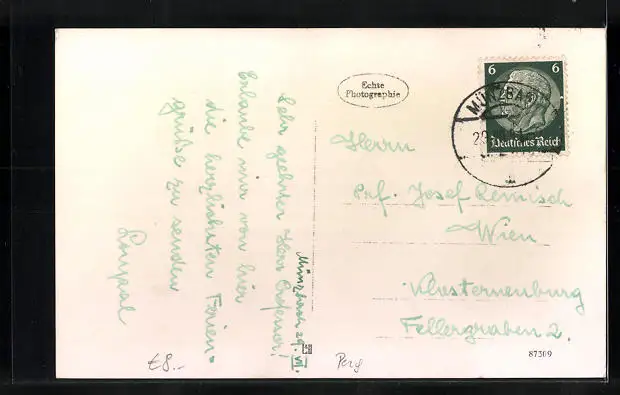 Münzbach 29. VII.
Sehr geehrter Herr Professor!
Erlaube mir von hier
die herzlichsten Ferien-
grüße zu senden
Echte
Photographie
6 6
MÜNZBACH
Deutsches Reich
Herrn
Prof. Josef Remisch
Wien
Klosterneuburg
Fellergraben 2.
€8.-
Perg
87309